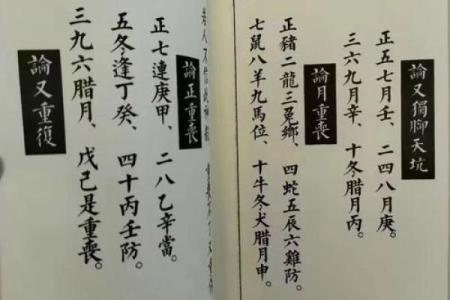 論又獨聊天坑
正五七月壬、二四八月庚。
三六九月辛、十冬腊月丙。
論月重喪
正豬二龍三兔鄉、四蛇五辰六雞防。
七鼠八羊九馬位、十牛冬犬腊月申。
論正重喪
正七連庚甲、二八乙辛當。
五冬逢丁癸、四十丙壬防。
三九六腊月、戊己是重喪。
論又重復